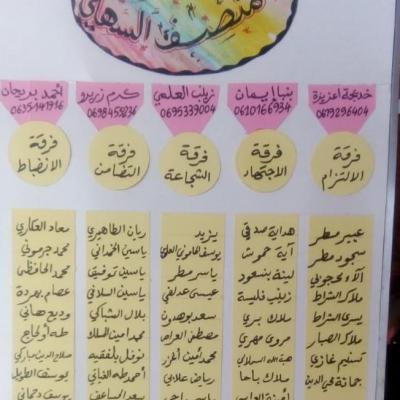 المنصف السهلي
خديجة اعزيزة
0619296404
بنبا إيمان
0610166934
زينب العلمي
0695339004
كرم زريرو
0698459236
أحمد بريجان
0635141916
فرقة
الالتزام
فرقة
الاجتهاد
فرقة
الشجاعة
فرقة
التضامن
فرقة
الانضباط
عبير مطر
سجود مطر
آلاء محجوبي
ملاك الشراط
يسرى الشراط
ملاك الصبار
تسنيم غازي
جمانة محي الدين
هداية صدقي
آية حموش
لينة بنسعود
زينب فليسة
ملاك بري
مروى مهري
هبة الله السلالي
ملاك باحا
يزيد
يوسف الهاموني العلمي
ياسر مطر
عيسى عدلفي
سعد بوهدون
مصطفى العراص
محمد ثمين أطرز
رياض علابي
ريان الطاهيري
ياسين الحمداني
ياسين توفيق
ياسين السلافي
بلال الشباكي
محمد امين الملك
نوفل بلفقيه
أحمد طه الغياتي
سعد المساعف
معاد العكاري
محمد جرموني
محمد الحافظي
عصام بهردة
وديع هاني
طه أولحاج
صلاح الدين مباركي
يوسف الطويل
يوسف دحماني